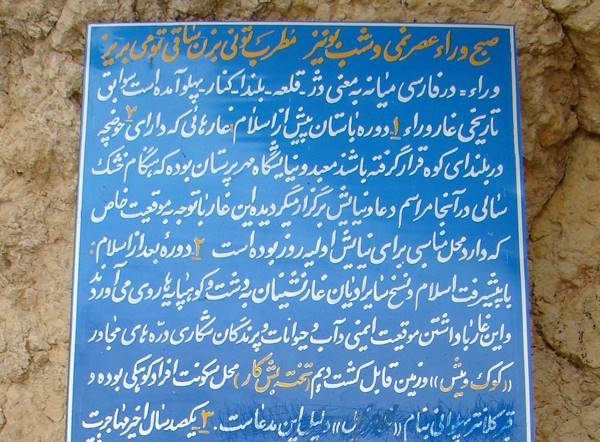 صبح وراء عصر نمی و شب بونیز مطرب تونی بزن ساقی تو می بریز
وراء = در فارسی میانه به معنی دژ - قلعه - بلندا - کنار - پهلو آمده است سوابق
تاریخی غار وراء ۱ دوره باستان پیش از اسلام غارهائی که دارای حوضچه ۳
در بلندای کوه قرار گرفته باشند معبد و نیایشگاه مهر پرستان بوده که هنگام خشک
سالی در آنجا مراسم دعا و نیایش برگزار میگردیده این غار با توجه به موقعیت خاص
که دارد محل مناسبی برای نیایش اولیه روز بوده است ۲ دوره بعد از اسلام :
با پیشرفت اسلام و نسخ سایر ادیان غارنشینان به دشت و کوهپایه ها روی می آورند
و این غار با داشتن موقعیت ایمنی و آب و حیوانات و پرندگان شکاری دره های مجاور
((کوک و پیش)) و زمین قابل کشت دیم (تخته پش کار) محل سکونت افراد کوچکی بوده و
دلیل این مدعاست . ۳ یکصد سال اخیر مهاجرت